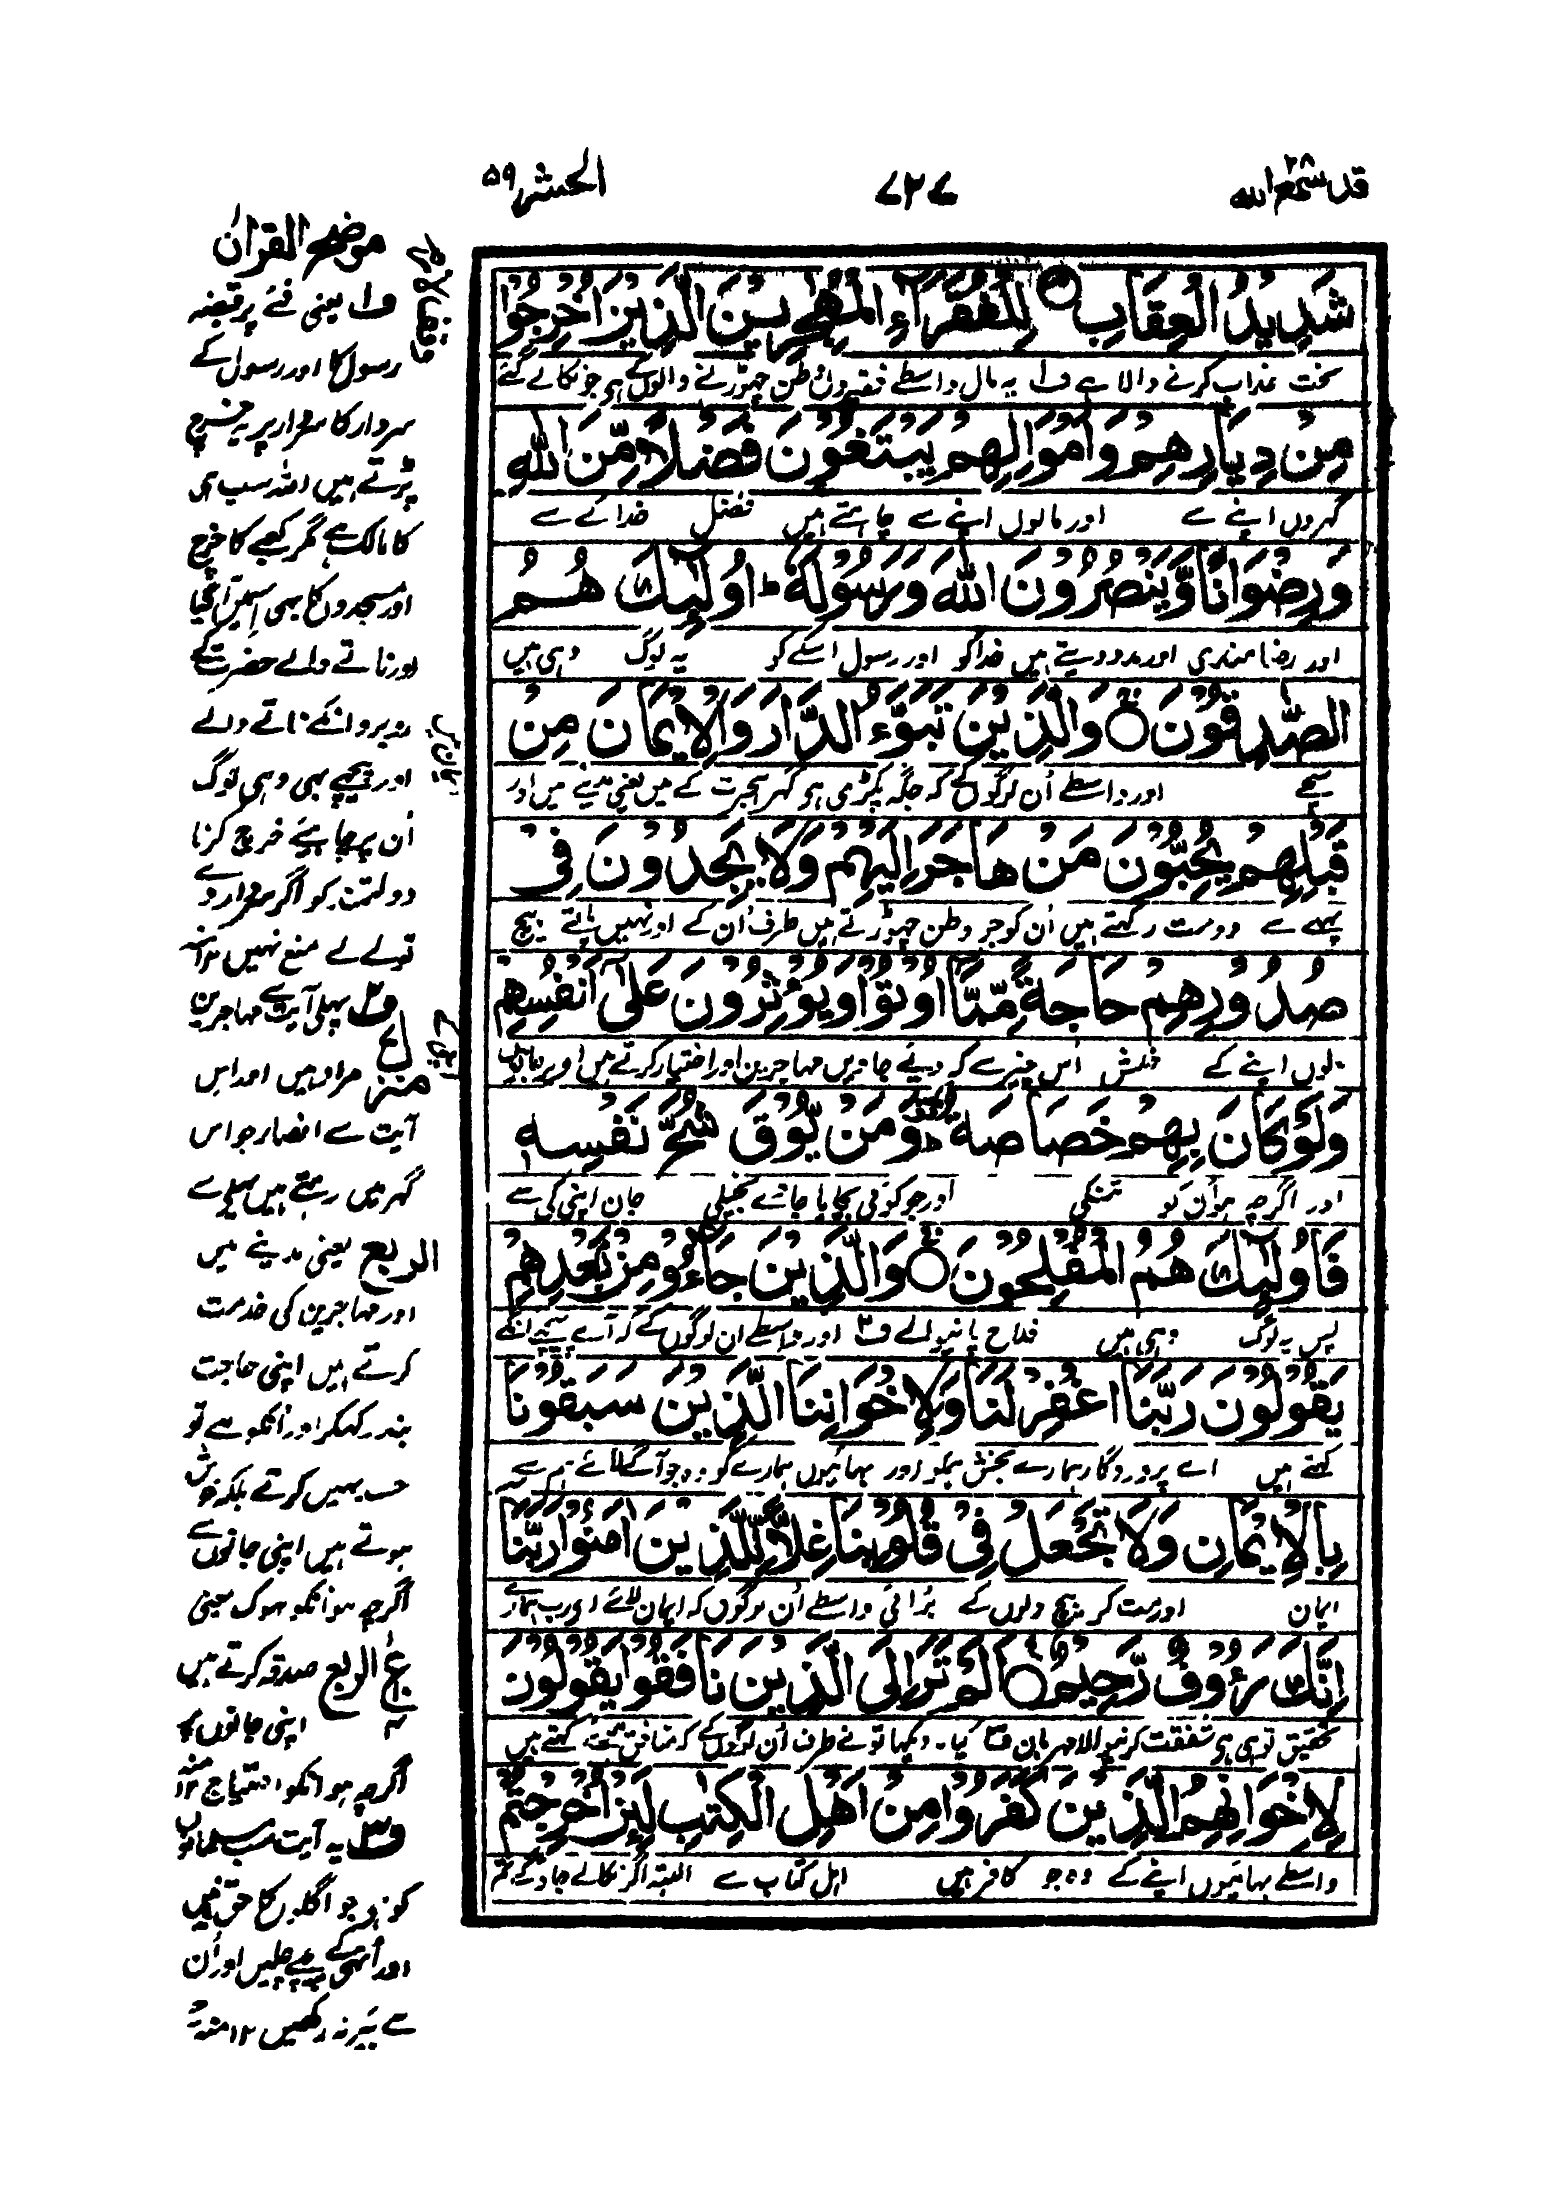 قد سمع الله ٢٨
٧٢٧
الحشر ٥٩
شَدِيدُ الْعِقَابِ ۝ لِلْفُقَرَآءِ الْمُهٰجِرِيْنَ الَّذِيْنَ اُخْرِجُوْا
سخت عذاب کرنے والا ہے ف۱ یہ مال واسطے فقیروں وطن چھوڑنے والوں کے ہی جو نکالے گئے
مِنْ دِيَارِهِمْ وَاَمْوَالِهِمْ يَبْتَغُوْنَ فَضْلًا مِّنَ اللّٰهِ
گھروں اپنے سے اور مالوں اپنے سے چاہتے ہیں فضل خدا کے سے
وَرِضْوَانًا وَّيَنْصُرُوْنَ اللّٰهَ وَرَسُوْلَهٗ ؕ اُولٰٓئِكَ هُمُ
اور رضامندی اور مدد دیتے ہیں خدا کو اور رسول اسکے کو یہ لوگ وہی ہیں
الصّٰدِقُوْنَ ۝ وَالَّذِيْنَ تَبَوَّءُ الدَّارَ وَالْاِيْمَانَ مِنْ
سچے اور واسطے اُن لوگوں کے کہ جگہ پکڑی ہی گھر ہجرت کے میں یعنی مدینے میں اور
قَبْلِهِمْ يُحِبُّوْنَ مَنْ هَاجَرَ اِلَيْهِمْ وَلَا يَجِدُوْنَ فِيْ
پہلے سے دوست رکھتے ہیں اُن کو جو وطن چھوڑتے ہیں طرف اُن کے اور نہیں پاتے بیچ
صُدُوْرِهِمْ حَاجَةً مِّمَّا اُوْتُوْا وَيُؤْثِرُوْنَ عَلٰٓى اَنْفُسِهِمْ
دلوں اپنے کے خلش اُس چیز سے کہ دیئے جاویں مہاجرین اور اختیار کرتے ہیں اوپر
وَلَوْ كَانَ بِهِمْ خَصَاصَةٌ وَمَنْ يُّوْقَ شُحَّ نَفْسِهٖ
اور اگرچہ ہو اُن کو تنگی اور جو کوئی بچایا جائے بخیلی جان اپنی کی سے
فَاُولٰٓئِكَ هُمُ الْمُفْلِحُوْنَ ۝ وَالَّذِيْنَ جَآءُوْ مِنْۢ بَعْدِهِمْ
پس یہ لوگ وہی ہیں فلاح پانیوالے ف۲ اور واسطے ان لوگوں کے کہ آئے پیچھے انکے
يَقُوْلُوْنَ رَبَّنَا اغْفِرْ لَنَا وَلِاِخْوَانِنَا الَّذِيْنَ سَبَقُوْنَا
کہتے ہیں اے پروردگار ہمارے بخش ہمکو اور بھائیوں ہمارے کو وہ جو آگے لائے ہم سے
بِالْاِيْمَانِ وَلَا تَجْعَلْ فِيْ قُلُوْبِنَا غِلًّا لِّلَّذِيْنَ اٰمَنُوْا رَبَّنَآ
ایمان اور مت کر بیچ دلوں کے بُرائی واسطے اُن لوگوں کہ ایمان لائے ای رب ہمارے
اِنَّكَ رَءُوْفٌ رَّحِيْمٌ ۝ اَلَمْ تَرَ اِلَى الَّذِيْنَ نَافَقُوْا يَقُوْلُوْنَ
تحقیق تو ہی ہی شفقت کرنیوالا مہربان ف۳ کیا نہ دیکھا تو نے طرف اُن لوگوں کے کہ منافق کہتے ہیں
لِاِخْوَانِهِمُ الَّذِيْنَ كَفَرُوْا مِنْ اَهْلِ الْكِتٰبِ لَئِنْ اُخْرِجْتُمْ
واسطے بھائیوں اپنے کے وہ جو کافر ہیں اہل کتاب سے البتہ اگر نکالے جاؤ گے تم
موضح القرآن
ف۱ یعنی فئے پر قبضہ
رسول کا اور رسول کے
سردار کا مقرر پر یہ خرچ
پڑتے ہیں اللہ سب ہی
کا مالک ہے مگر کعبے کا خرچ
اور مسجدوں کا بھی اسمیں آگیا
اور ناتے والے حضرت کے
روبرو انکے ناتے والے
اور پیچھے بھی وہی لوگ
اُن پر چاہیئے خرچ کرنا
دولتمند کو اگر سردار دے
تولے لے منع نہیں ۱۲ منہ
ف۲ پہلی آیت سے مہاجرین
مراد ہیں اور اس
آیت سے انصار جو اس
گھر میں رہتے ہیں پہلے سے
الربع یعنی مدینے میں
اور مہاجرین کی خدمت
کرتے ہیں اپنی حاجت
بند رکھکر اور انکو ملے تو
حسد نہیں کرتے بلکہ خوش
ہوتے ہیں اپنی جانوں سے
اگرچہ ہو انکو بھوک یعنی
صدقہ کرتے ہیں
اپنی جانوں کا
اگرچہ ہو انکو احتیاج ۱۲ منہ
ف۳ یہ آیت سب مسلمانوں
کو ہی جو اگلوں کا حق مانیں
اور اُنہی کے پیچھے چلیں اور اُن
سے بیر نہ رکھیں ۱۲ منہ